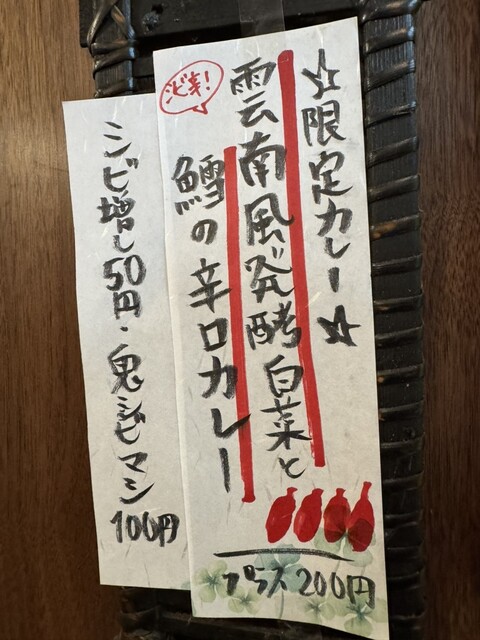 ☆限定カレー☆
雲南風発酵白菜と
鱈の辛口カレー
シビ辛!
プラス200円
シビ増し50円・鬼シビマシ
100円